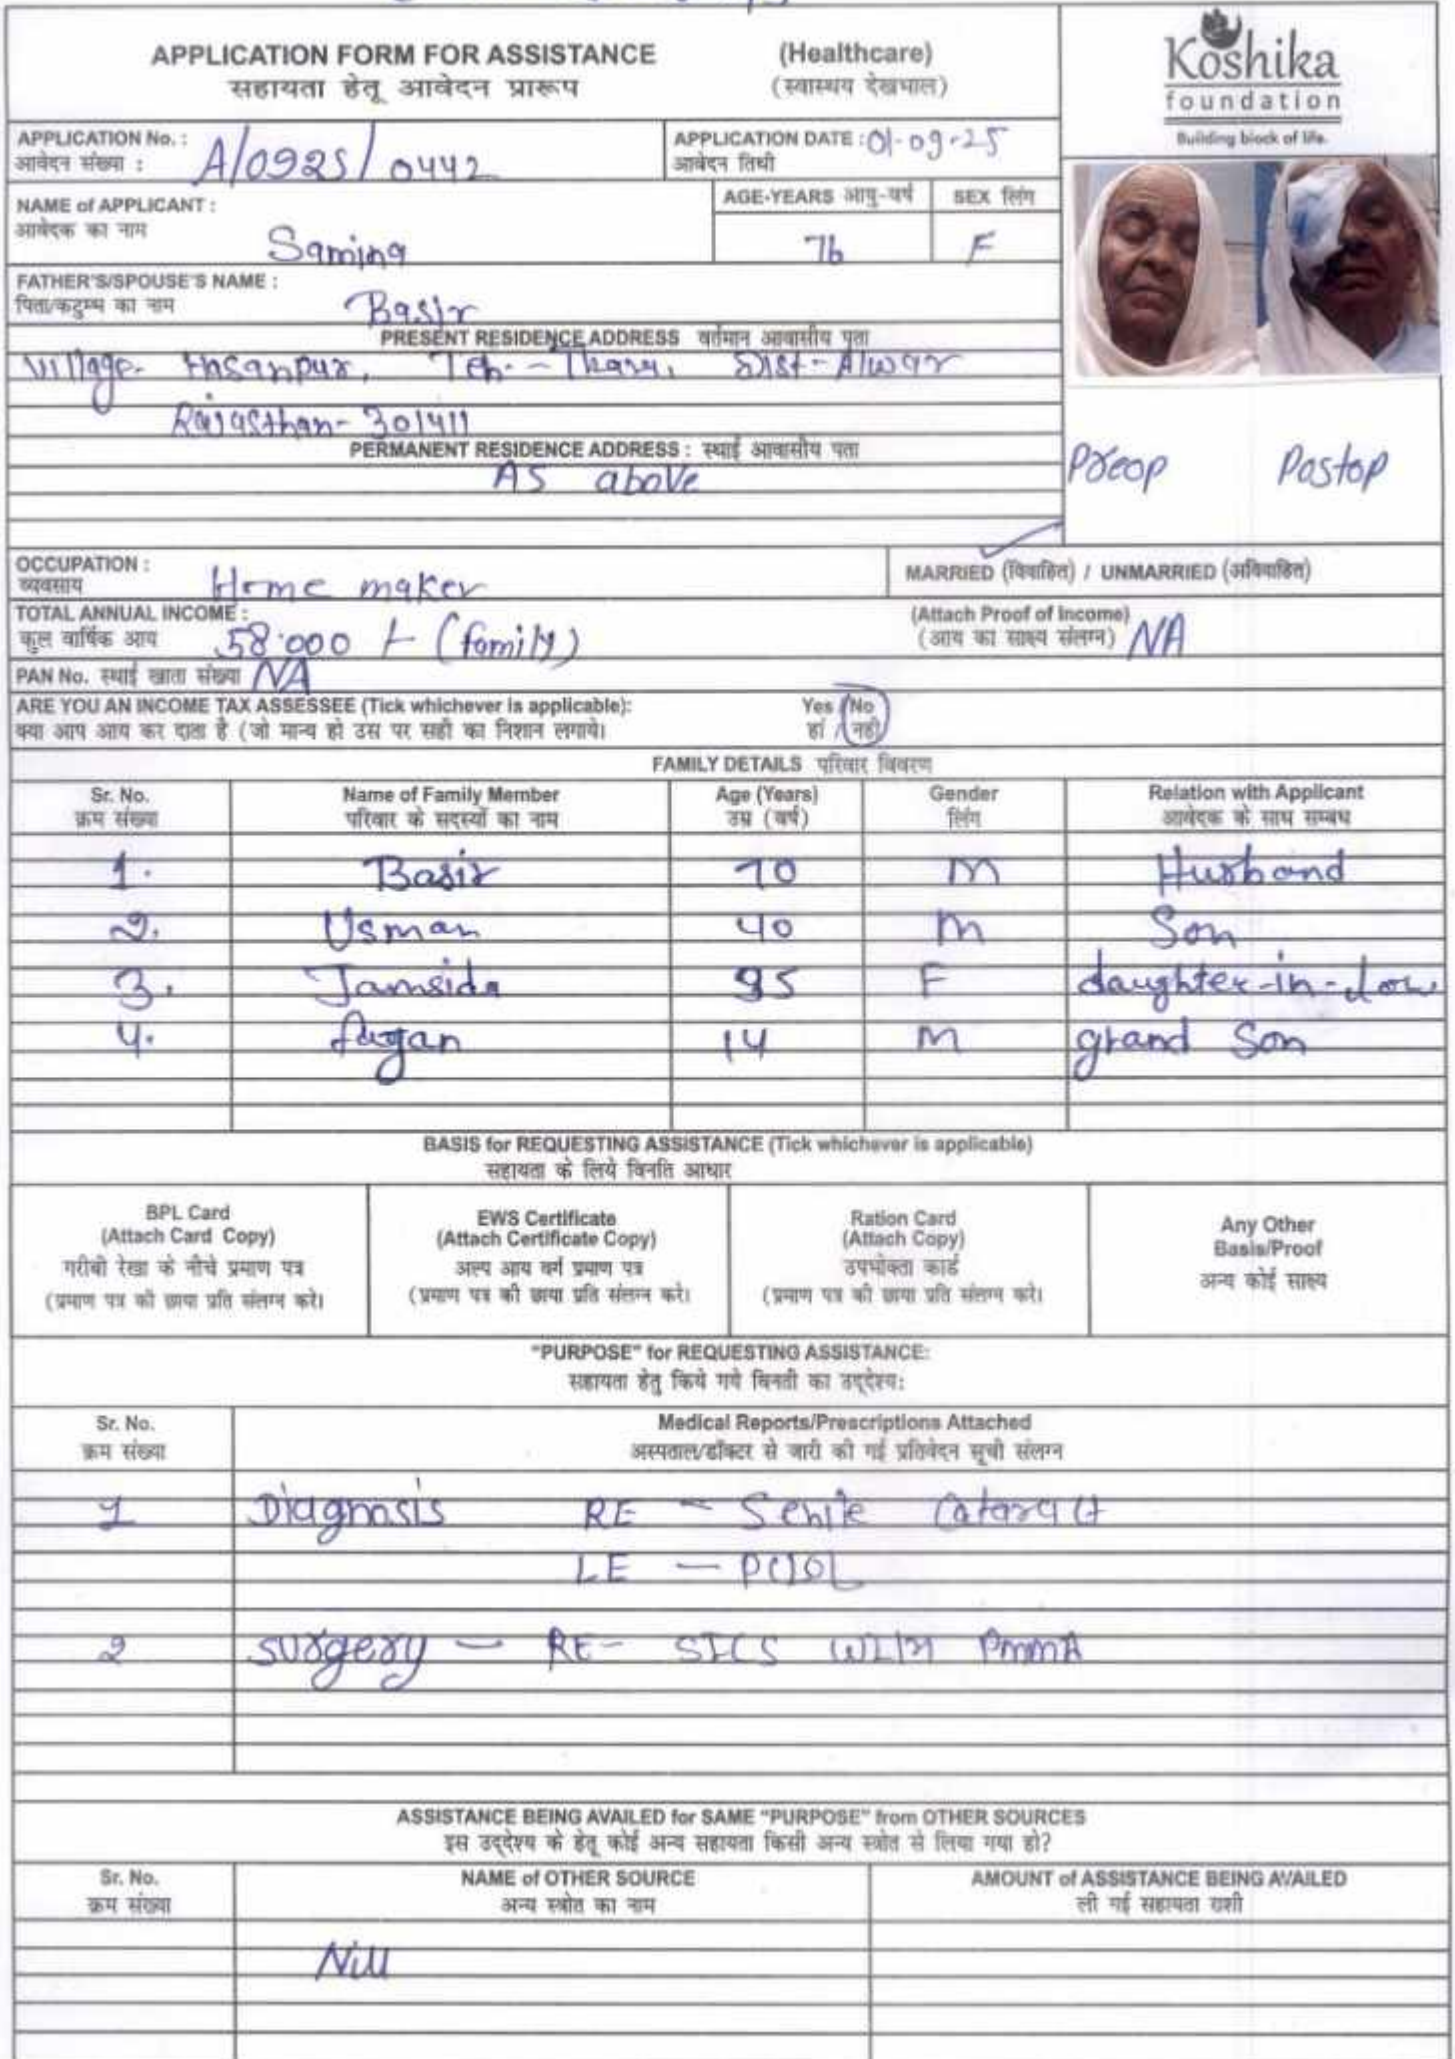 APPLICATION FORM FOR ASSISTANCE (Healthcare)
सहायता हेतू आवेदन प्रारूप (स्वास्थय देखभाल)
Koshika
foundation
Building block of life.
APPLICATION No. : A/0925/0442
आवेदन संख्या :
APPLICATION DATE : 01-09-25
आवेदन तिथी
NAME of APPLICANT : Samina
आवेदक का नाम
AGE-YEARS आयु-वर्ष 76
SEX लिंग F
FATHER'S/SPOUSE'S NAME : Basir
पिता/कटुम्ब का नाम
PRESENT RESIDENCE ADDRESS वर्तमान आवासीय पता
Village- Hasanpur, Teh.- Dist- Alwar
Rajasthan- 301411
PERMANENT RESIDENCE ADDRESS : स्थाई आवासीय पता
AS above
Preop Postop
OCCUPATION : Home maker
व्यवसाय
MARRIED (विवाहित) / UNMARRIED (अविवाहित)
TOTAL ANNUAL INCOME : 58.000 /- (family)
कुल वार्षिक आय
(Attach Proof of Income) NA
(आय का साक्ष्य संलग्न)
PAN No. स्थाई खाता संख्या NA
ARE YOU AN INCOME TAX ASSESSEE (Tick whichever is applicable): Yes / No
क्या आप आय कर दाता है (जो मान्य हो उस पर सही का निशान लगाये। हां / नही
FAMILY DETAILS परिवार विवरण
Sr. No. Name of Family Member Age (Years) Gender Relation with Applicant
क्रम संख्या परिवार के सदस्यों का नाम उम्र (वर्ष) लिंग आवेदक के साथ सम्बध
1. Basir 70 M Husband
2. Usman 40 M Son
3. Jamsida 35 F daughter-in-low
4. 14 M grand Son
BASIS for REQUESTING ASSISTANCE (Tick whichever is applicable)
सहायता के लिये विनति आधार
BPL Card
(Attach Card Copy)
गरीबी रेखा के नीचे प्रमाण पत्र
(प्रमाण पत्र की छाया प्रति संलग्न करे।
EWS Certificate
(Attach Certificate Copy)
अल्प आय वर्ग प्रमाण पत्र
(प्रमाण पत्र की छाया प्रति संलग्न करे।
Ration Card
(Attach Copy)
उपभोक्ता कार्ड
(प्रमाण पत्र की छाया प्रति संलग्न करे।
Any Other
Basis/Proof
अन्य कोई साक्ष्य
"PURPOSE" for REQUESTING ASSISTANCE:
सहायता हेतु किये गये विनती का उद्देश्य:
Sr. No. Medical Reports/Prescriptions Attached
क्रम संख्या अस्पताल/डॉक्टर से जारी की गई प्रतिवेदन सूची संलग्न
1 Diagnosis RE - Senile Cataract
LE - PCIOL
2 surgery - RE- SICS WITH PMMA
ASSISTANCE BEING AVAILED for SAME "PURPOSE" from OTHER SOURCES
इस उद्देश्य के हेतू कोई अन्य सहायता किसी अन्य स्त्रोत से लिया गया हो?
Sr. No. NAME of OTHER SOURCE AMOUNT of ASSISTANCE BEING AVAILED
क्रम संख्या अन्य स्त्रोत का नाम ली गई सहायता राशी
Nill